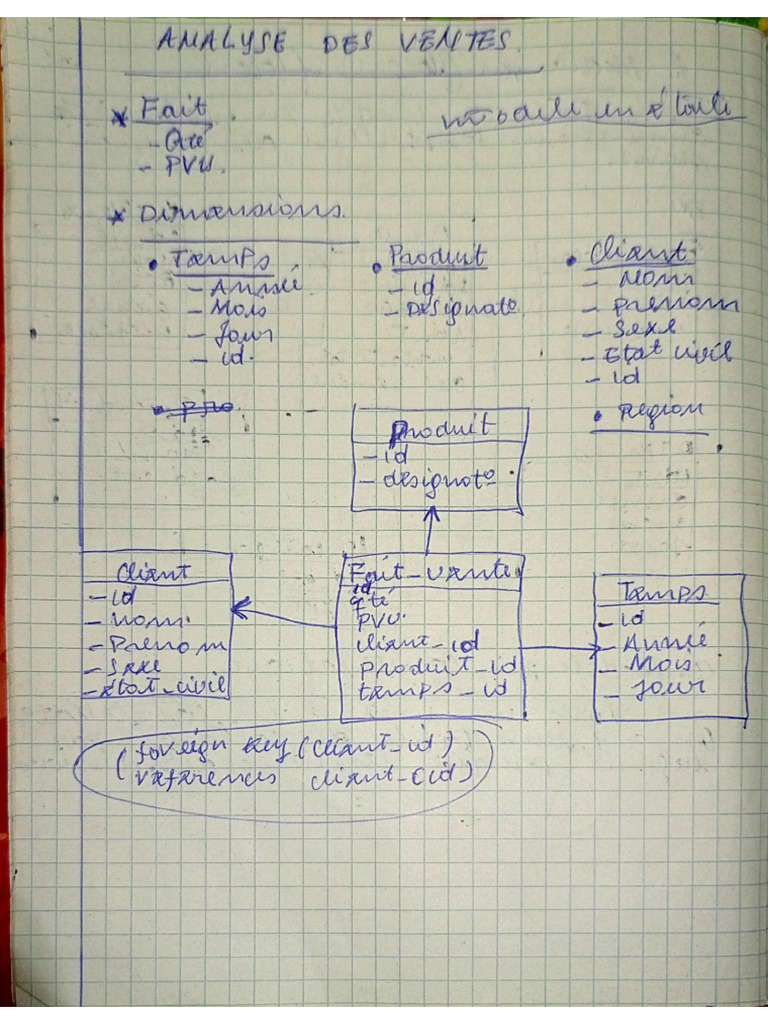 ANALYSE DES VENTES
Modele en étoile
* Fait
- Qté
- PVU.
* Dimensions.
• Temps
- Année
- Mois
- Jour
- id.
• Produit
- id
- Designatº
• Client
- Nom
- prenom
- Sexe
- Etat civil
- id
• Region
• Pro
Produit
- id
- designatº
Client
- id
- Nom
- Prenom
- Sexe
- état_civil
Fait_vente
id
qté
PVU.
client_id
produit_id
temps_id
Temps
- id
- Année
- Mois
- Jour
(foreign key (client_id)
references client_(id)